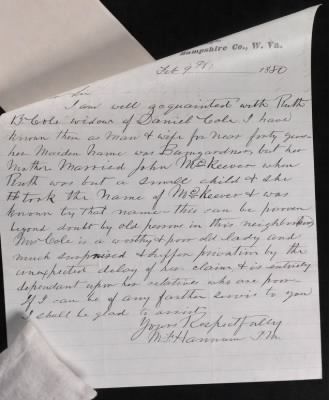 Hampshire Co., W. Va.
Feb 9th 1880
Sir
I am well acquainted with Ruth
B. Cole widow of Daniel Cole I have
known them as Man & wife for near forty years
her Maiden Name was Bumgardner, but her
Mother Married John McKeever when
Ruth was but a small child & she
took the Name of McKeever & was
known by that name this can be proven
beyond doubt by old persons in this neighborhood
Mrs Cole is a worthy & poor old lady and
much surprised & suffers privation by the
unexpected delay of her claim, & is entirely
dependant upon her relatives who are poor
If I can be of any farther servis to you
I shall be glad to assist
Yours Respectfully
M. F. Hannum P.M.